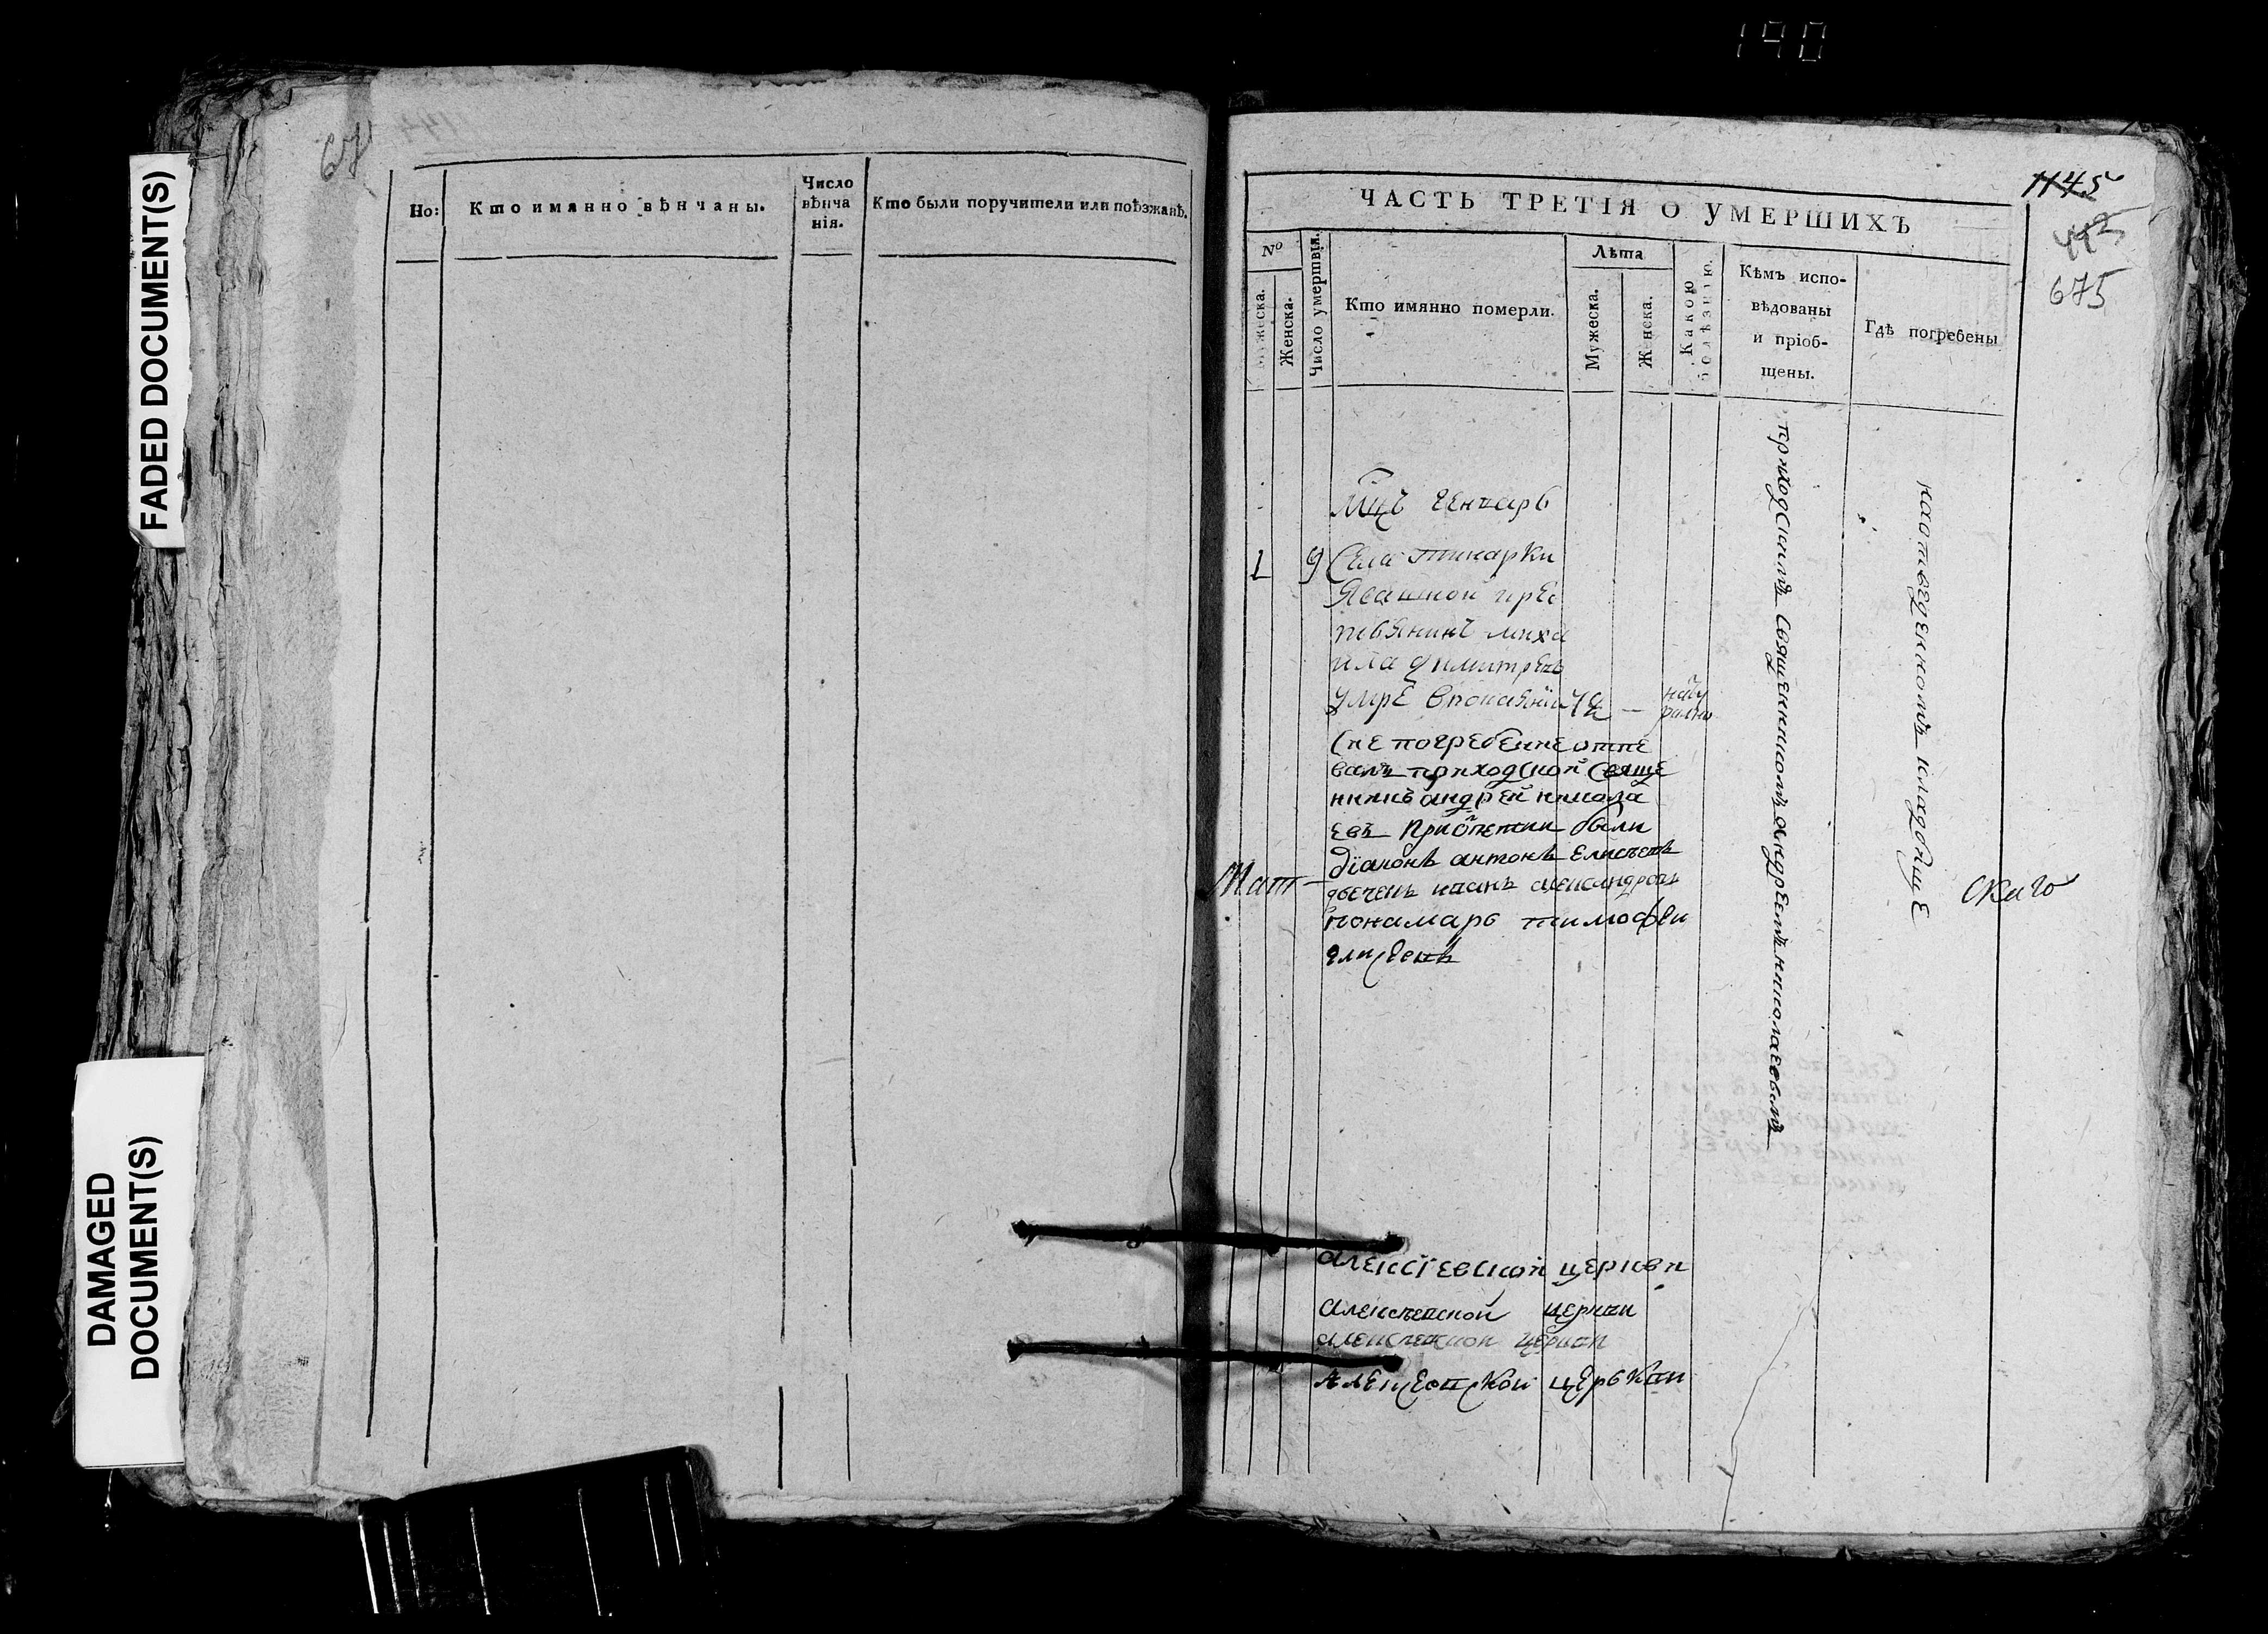 190
FADED DOCUMENT(S)
DAMAGED
DOCUMENT(S)
67
Но:
Кто имянно вѣнчаны.
Число
вѣнча
нія.
Кто были поручители или поѣзжанѣ.
1145
675
ЧАСТЬ ТРЕТІЯ О УМЕРШИХЪ
№
Мужеска.
Женска.
Число умертвія.
Кто имянно померли.
Лѣта
Мужеска.
Женска.
Какою
болѣзнію.
Кѣмъ испо-
вѣдованы
и пріоб-
щены.
Гдѣ погребены
Мцъ генварь
1 9 Села
Ясашной крес
Миха
ила Димитрев
умре —
погребение отпе
валъ приходской свяще
нникъ андрей никола
евъ При были
діаконъ антонъ елисеевъ
иванъ александровъ
пономарь тимофеи
приходскимъ священникомъ андреемъ николаевымъ
наотведенномъ кладбище
Мат —
скаго
алексіевской церкви
алексѣевской церкви
алексѣевской церкви
Алексеевской церькви